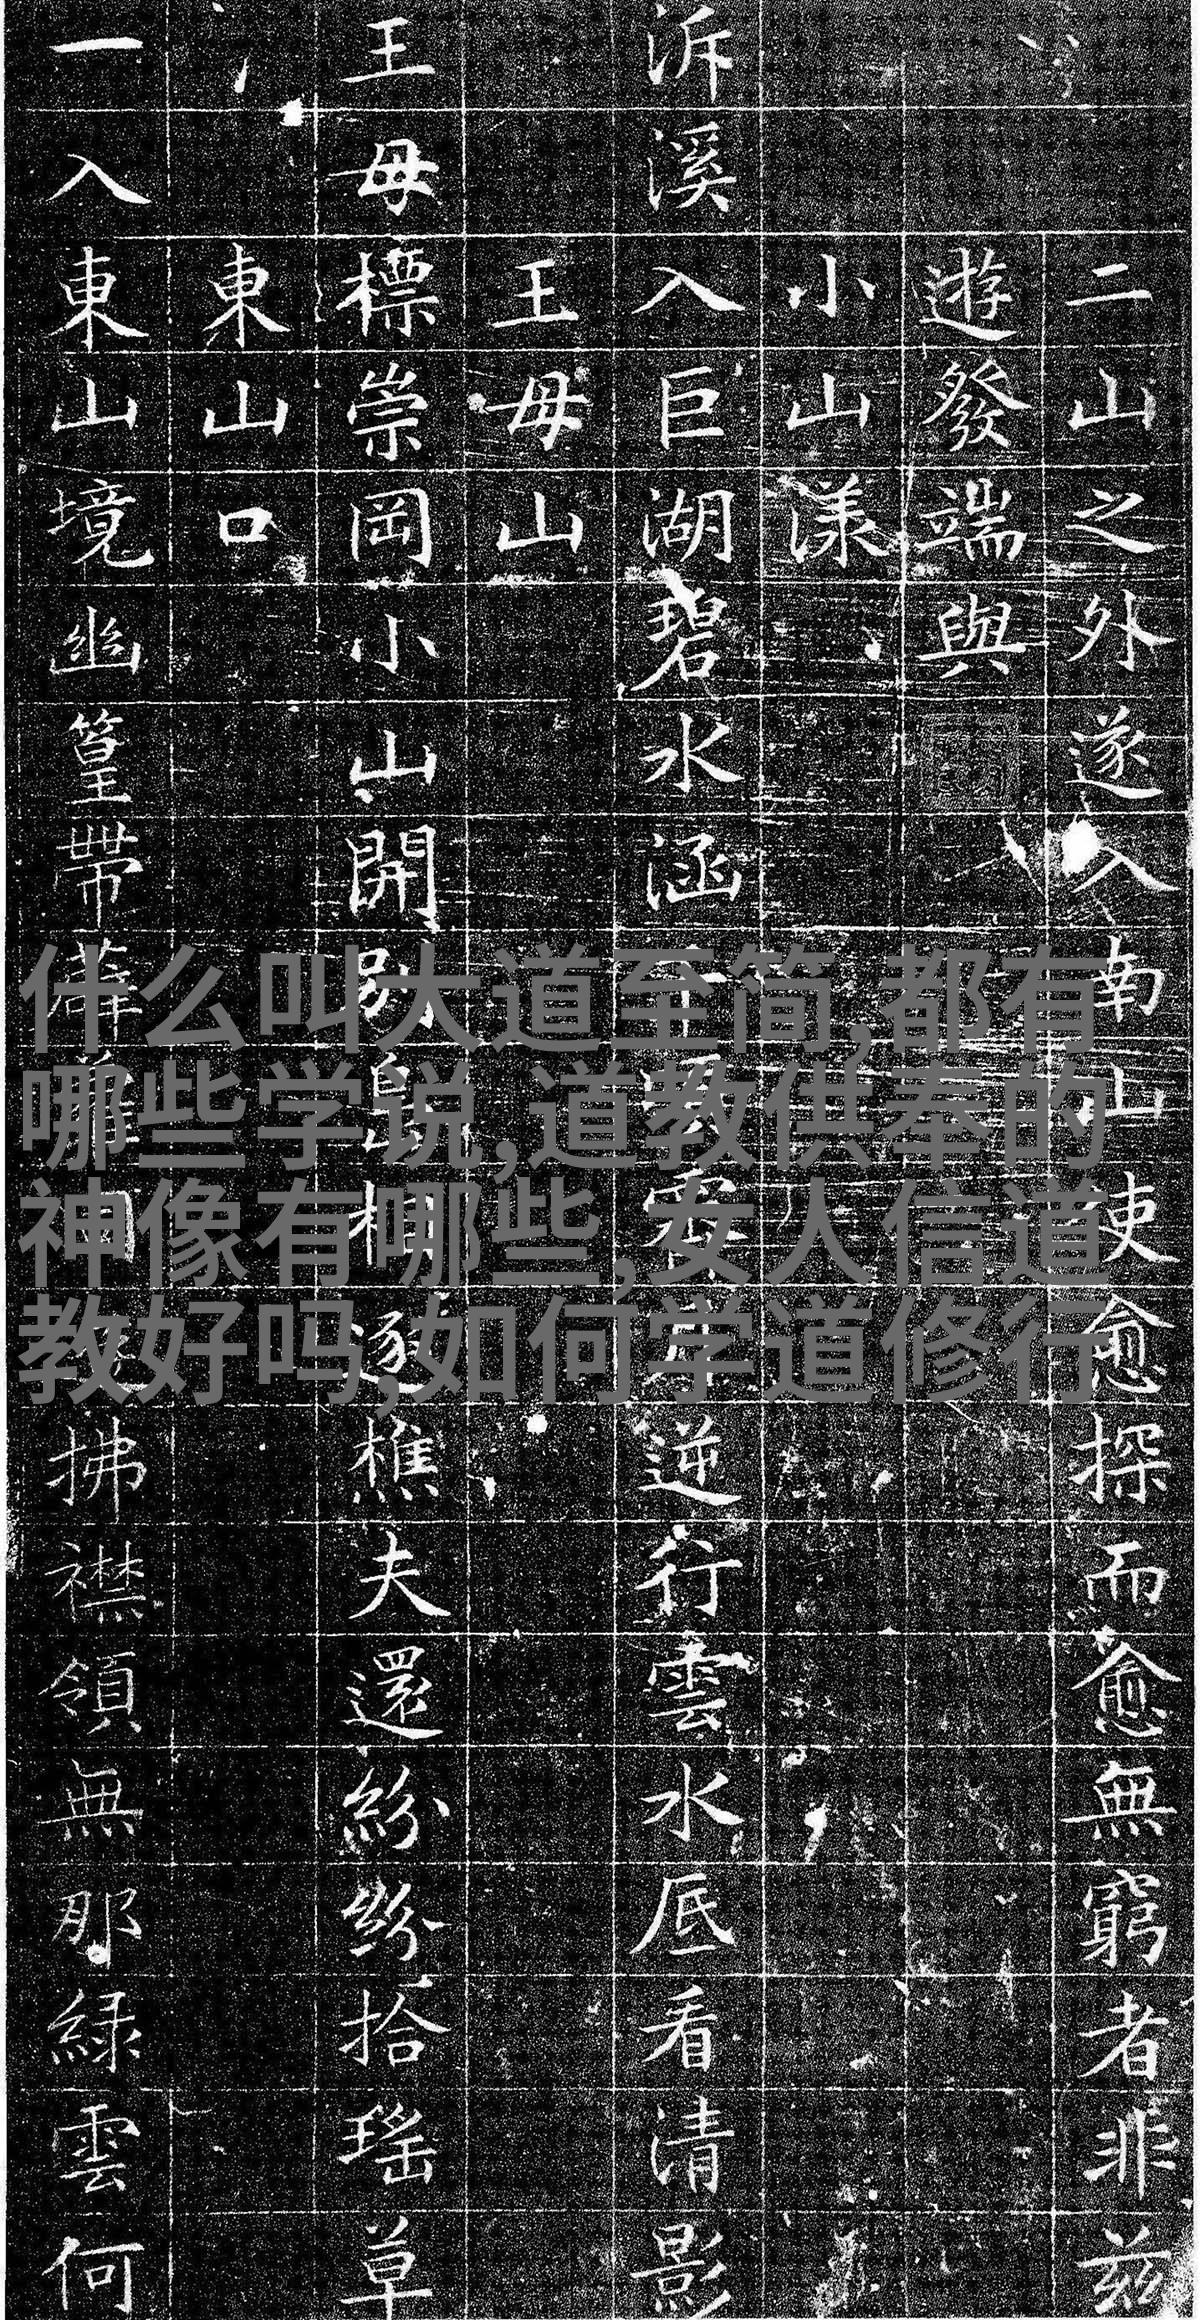 二山之外遂入南山使愈探而愈無窮者非茲
遊發端與
小山漾
泝溪入巨湖碧水涵千逆行雲水底看清影
王母山
王母標崇岡小山開別島相逐樵夫還紛紛拾瑤草
東山口
一入東山境幽篁帶拂襟領無那綠雲何
什么叫大道至简,都有
哪些学说,道教供奉的
神像有哪些,女人信道
教好吗,如何学道修行